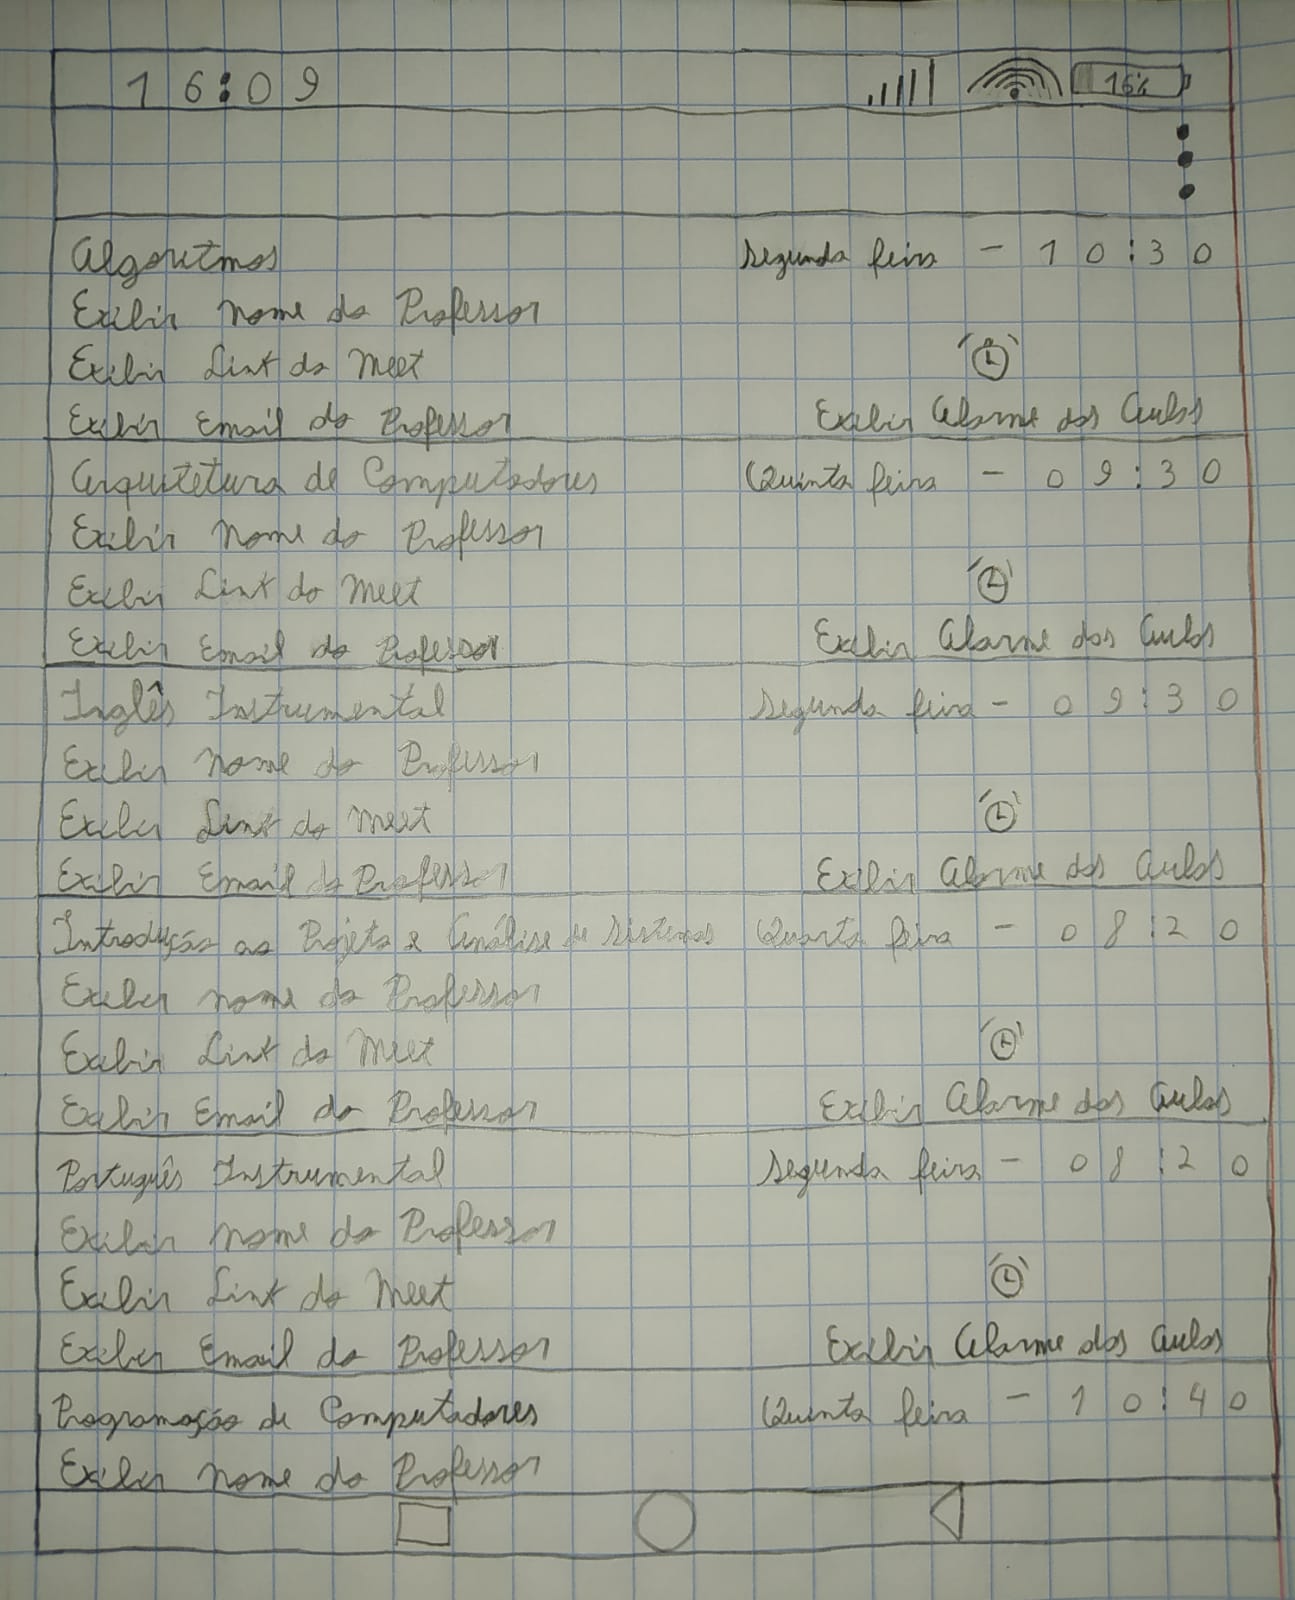 16:09 16%
Algoritmos Segunda feira - 10:30
Exibir Nome do Professor
Exibir Link do Meet
Exibir Email do Professor Exibir Alarme das Aulas
Arquitetura de Computadores Quinta feira - 09:30
Exibir Nome do Professor
Exibir Link do Meet
Exibir Email do Professor Exibir Alarme das Aulas
Inglês Instrumental Segunda feira - 09:30
Exibir Nome do Professor
Exibir Link do Meet
Exibir Email do Professor Exibir Alarme das Aulas
Introdução ao Projeto e Análise de Sistemas Quarta feira - 08:20
Exibir Nome do Professor
Exibir Link do Meet
Exibir Email do Professor Exibir Alarme das Aulas
Português Instrumental Segunda feira - 08:20
Exibir Nome do Professor
Exibir Link do Meet
Exibir Email do Professor Exibir Alarme das Aulas
Programação de Computadores Quinta feira - 10:40
Exibir Nome do Professor